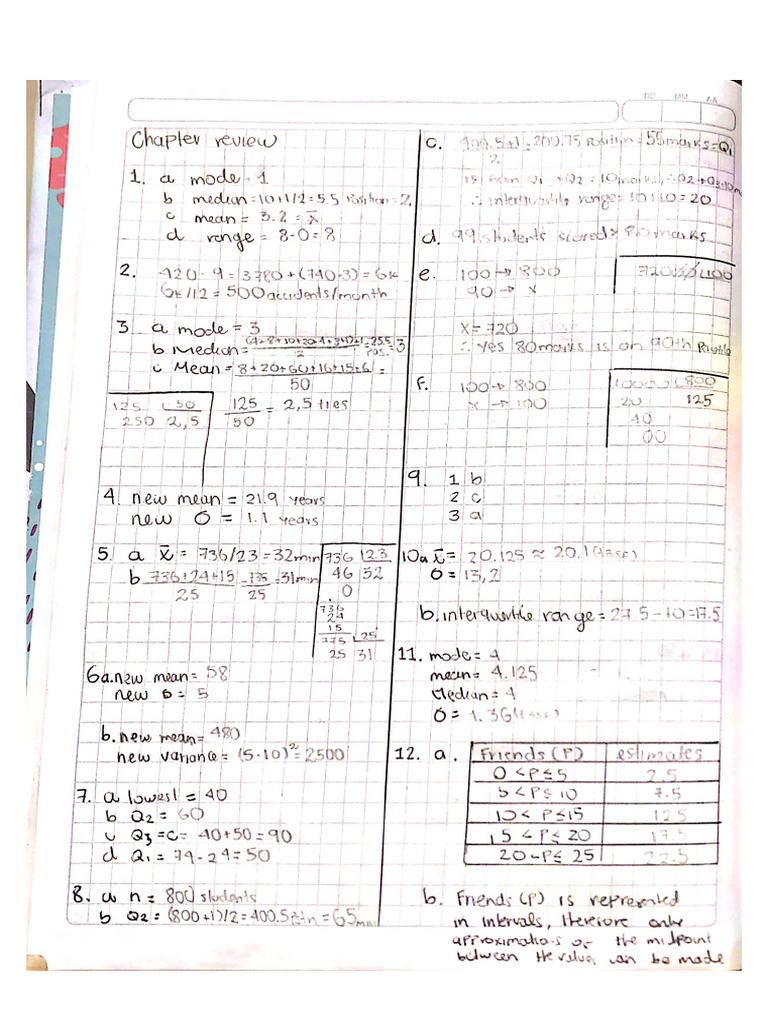 DD MM AA
Chapter review
1. a mode = 1
b median = 10+1/2 = 5.5 Position = 2
c mean = 3.2 = x̄
d range = 8-0 = 8
2. 420 · 9 = 3780 + (740·3) = 6k
6k/12 = 500 accidents/month
3 a mode = 3
b Median = 2 = 25.5 pos. = 3
c Mean = 8+20+60+16+15+6 =
50
125 50
250 2,5
125/50 = 2,5 ties
4. new mean = 21.9 years
new σ = 1.1 years
5. a x̄ = 736/23 = 32min
b 736+24+15/25 = /25 = 31min
736 23
46 32
0
736
24
15
775 25
25 31
6a. new mean = 58
new σ = 5
b. new mean = 480
new variance = (5·10)² = 2500
7. a lowest = 40
b Q2 = 60
c Q3 = c = 40+50 = 90
d Q1 = 74-24 = 50
8. a n = 800 students
b Q2 = (800+1)/2 = 400.5 = 65
c. 400.5+1/2 = 200.75 Position = 55 marks = Q1
Q1 → Q2 = 10 marks, ∴ Q2 →
∴ interquartile range = 10+10 = 20
d. 99 students scored > 80 marks
e. 100 → 800
90 → x
x = 720
∴ yes 80 marks is on 90th
f. 100 → 800
x → 100
800
20 125
40
00
9. 1 b
2 c
3 a
10a x̄ = 20.125 ≈ 20.1 (3sf)
σ = 13,2
b. interquartile range = 27.5 - 10 = 17.5
11. mode = 4
mean = 4.125
Median = 4
σ = 1.36
12. a. Friends (P) estimates
0 < P ≤ 5 2.5
5 < P ≤ 10 7.5
10 < P ≤ 15 12.5
15 < P ≤ 20 17.5
20 < P ≤ 25 22.5
b. Friends (P) is represented
in intervals, therefore only
approximations of the midpoint
between the values can be made